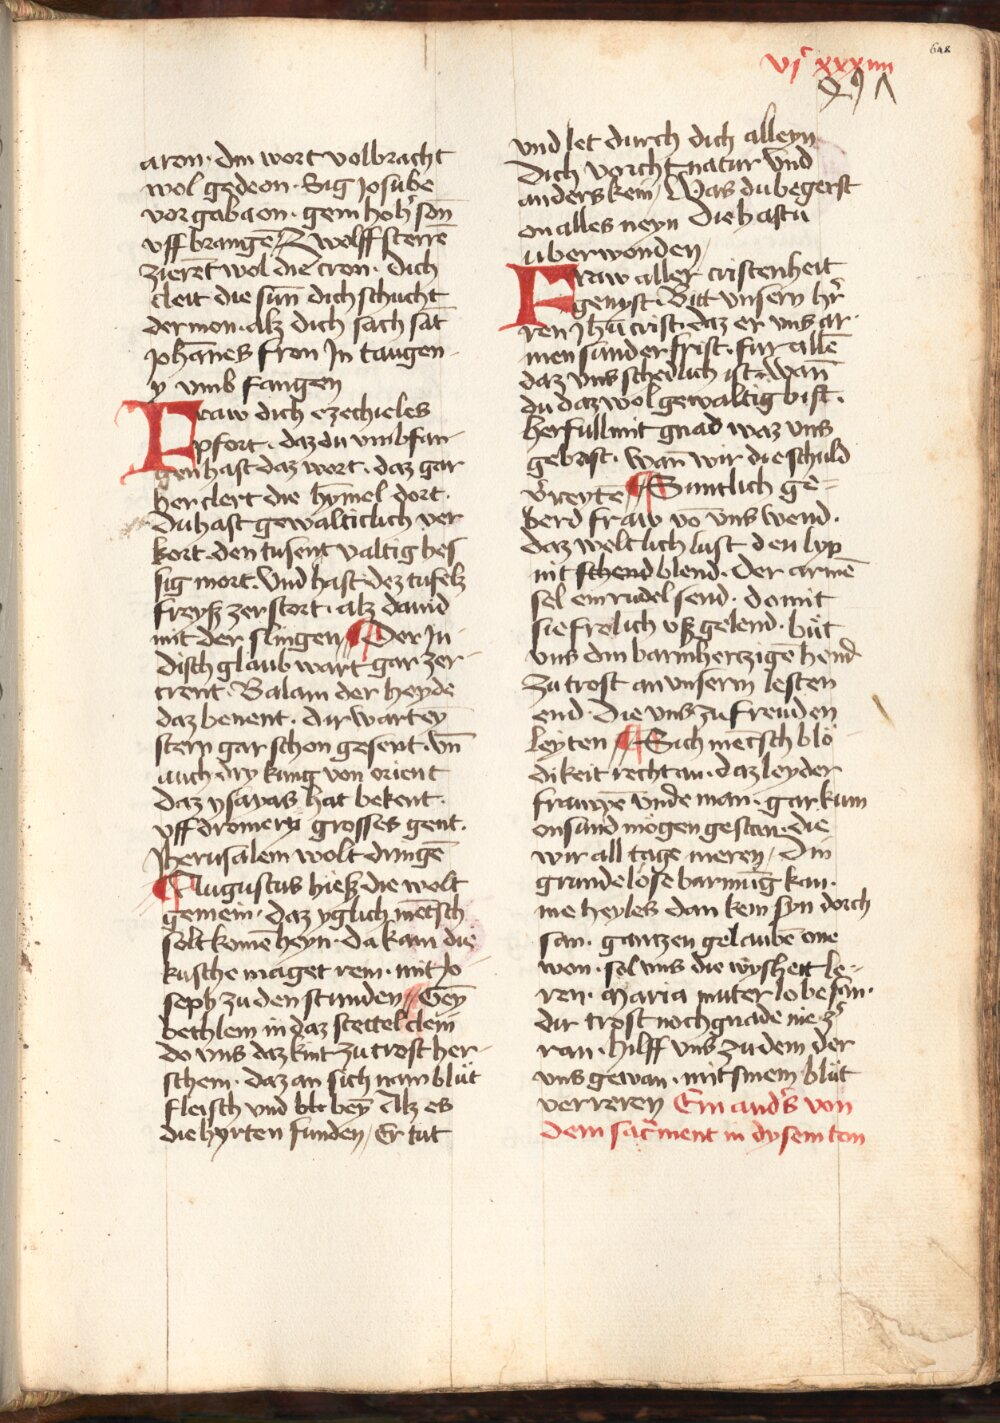 648
vjͨ xxxiiij
aron · din wort volbracht
wol gedeon · Sig Josube
vor gabaon · gein hoh' son̄
vff brangē Zwolff sterrē
zierēt wol die cron · dich
cleit die sūn dich schucht
der mon · alz dich sach sāt
Johānes fron Jn taugen ·
y vmb fangen
Fraw dich ezechieles
pfort · daz du vmbfan-
gen hast daz wort · daz gar
her clert die hȳmel dort ·
du hast gewalticlich ver
kort · den tusent valtig bes
sig mort · Vnd hast dez tufelz
freysz zerstort · alz dauid
mit der slingen Der Ju
disch glaub wart gar zer-
trent · Balam der heyde
daz benent · dir wart ey
stern gar schon gesent · vn̄
auch dry kung von orient
daz ysayas hat bekent ·
vff dromery grosses gent ·
Jherusalem wolt dringē
Augustus hiesz die wolt
gemein · daz yglich mētsch
solt komē heyn · da kam die
kusche maget rein · mit Jo
seph zu den stunden Geȳ
bethlem in daz stettel clein
do vns daz kint zu trost her-
schein · daz an sich nam blüt
fleisch vnd beȳ Alz es
die hyrten funden / Er tut
vnd let durch dich alleyn
dich vorcht natur vnd
anders kein / Was du begerst
on alles neyn die hastu
uberwonden /
Fraw aller cristenheit
genyst · Bitt vnsern hr̄
ren Jhū crist · daz er vns ar ·
men sunder frist · fur allē
daz vns schedlich ist · wan̄
du daz wol gewaltig bist ·
her full mit gnad waz vns
gebrist · wan̄ wir die schuld
v'reytē Suntlich ge=
berd fraw vō vns wend ·
daz weltlich lust den lyp
nit schend blend · der armē
sel ein rudel send · do mit
sie frelich vsz gelend · büt
vns din barmhertzigē hend
zu trost an vnserm lesten
end · die vns zu freuden
leyten Sich mētsch blö
dikeit recht an · daz leyder
frauwē vnde man · gar kum
on sund mögen gestan · die
wir all tage meren / Din
grundelöse barmūg kan ·
me heyles dan kein syn dorch
san · gantzen gelaubē one
won · sol vns die wysheit le-
ren · Maria muter lobesan ·
dir trost noch gnade nie z'
ran · hilff vns zu dem der
vns gewan · mit sinem blüt
verreren Ein and's von
dem sac̄ment in dysem ton